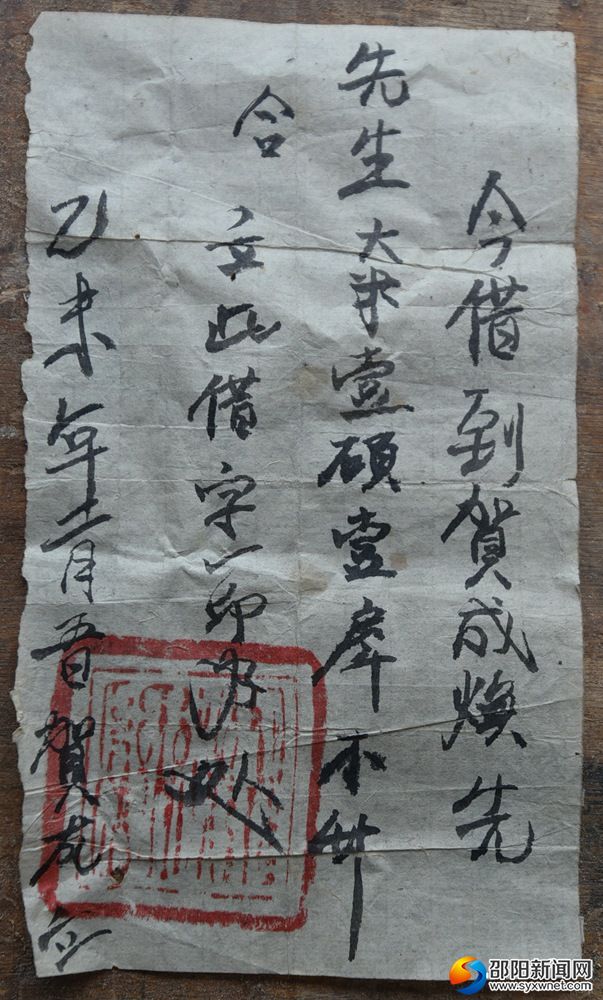 今借到贺成焕先
先生大米壹硕壹 不
合
立此借字一
乙未年十一月 日贺龙立
邵阳新闻网
www.syxwnet.com